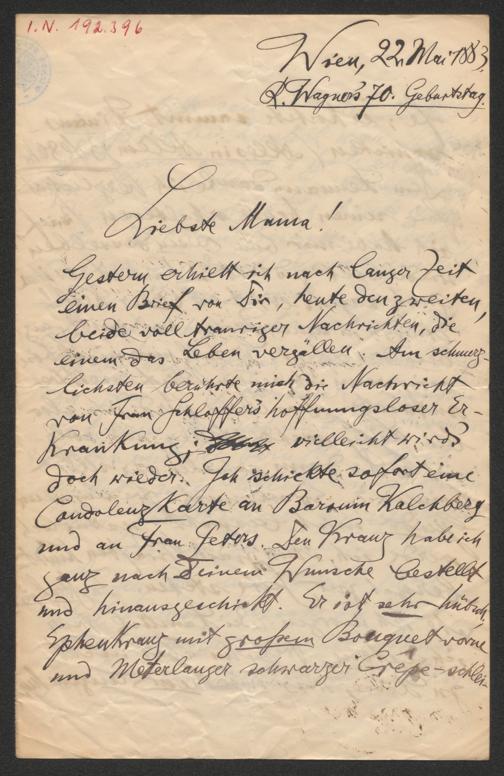 I.N. 192.396
Wien, 22. Mai 1883.
R. Wagner's 70. Geburtstag.
Liebste Mama!
Gestern erhielt ich nach langer Zeit
einen Brief von Dir, heute den zweiten,
beide voll trauriger Nachrichten, die
einem das Leben vergällen. Am schmerz-
lichsten berührte mich die Nachricht
von Frau Schloffer's hoffnungsloser Er-
krankung, vielleicht wird's
doch wieder. Ich schickte sofort eine
Condolenzkarte an Baronin Kalchberg
und an Frau Peters. Den Kranz habe ich
ganz nach Deinem Wunsche bestellt
und hinausgeschickt. Er ist sehr hübsch,
Epheukranz mit grossem Bouquet vorne
und Meterlanger schwarzer Crêpe-schlei-